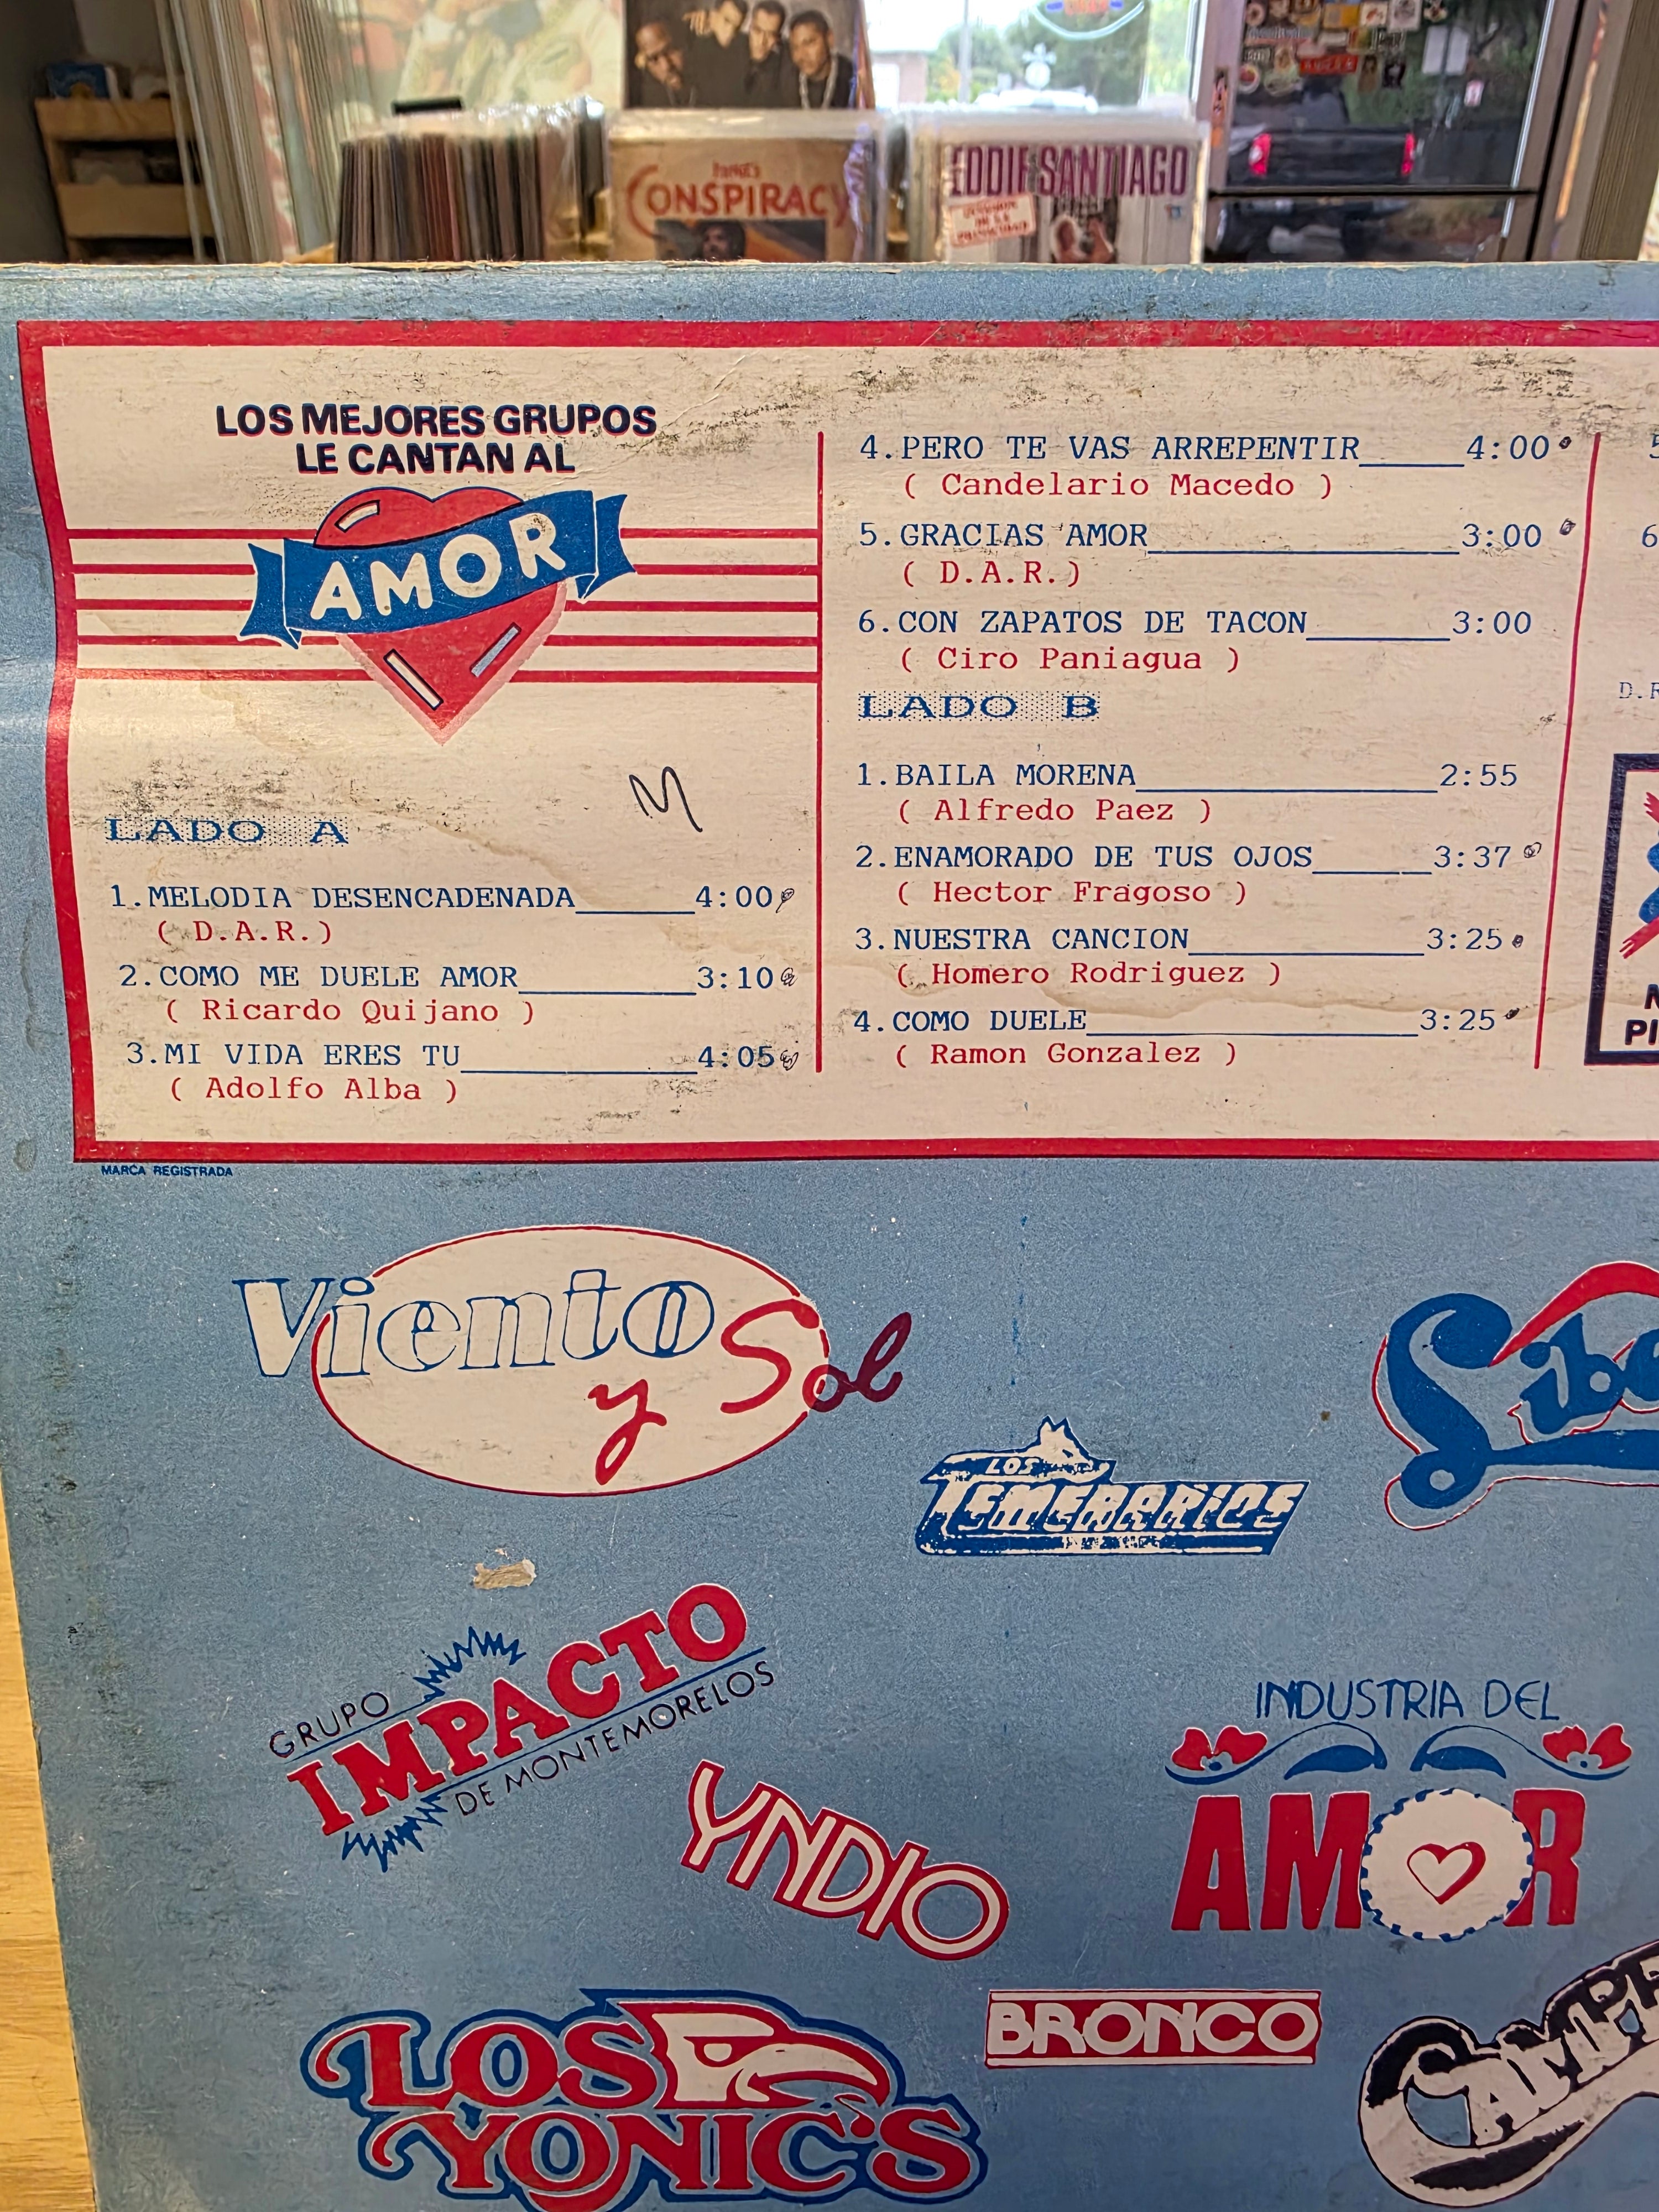 CONSPIRACY
EDDIE SANTIAGO
LOS MEJORES GRUPOS
LE CANTAN AL
AMOR
M
LADO A
1.MELODIA DESENCADENADA 4:00
( D.A.R.)
2.COMO ME DUELE AMOR 3:10
( Ricardo Quijano )
3.MI VIDA ERES TU 4:05
( Adolfo Alba )
4.PERO TE VAS ARREPENTIR 4:00
( Candelario Macedo )
5.GRACIAS AMOR 3:00
( D.A.R.)
6.CON ZAPATOS DE TACON 3:00
( Ciro Paniagua )
LADO B
1.BAILA MORENA 2:55
( Alfredo Paez )
2.ENAMORADO DE TUS OJOS 3:37
( Hector Fragoso )
3.NUESTRA CANCION 3:25
( Homero Rodriguez )
4.COMO DUELE 3:25
( Ramon Gonzalez )
6
MARCA REGISTRADA
Viento
y Sol
LOS
TEMERARIOS
GRUPO
IMPACTO
DE MONTEMORELOS
YNDIO
INDUSTRIA DEL
AMOR
BRONCO
LOS
YONIC'S